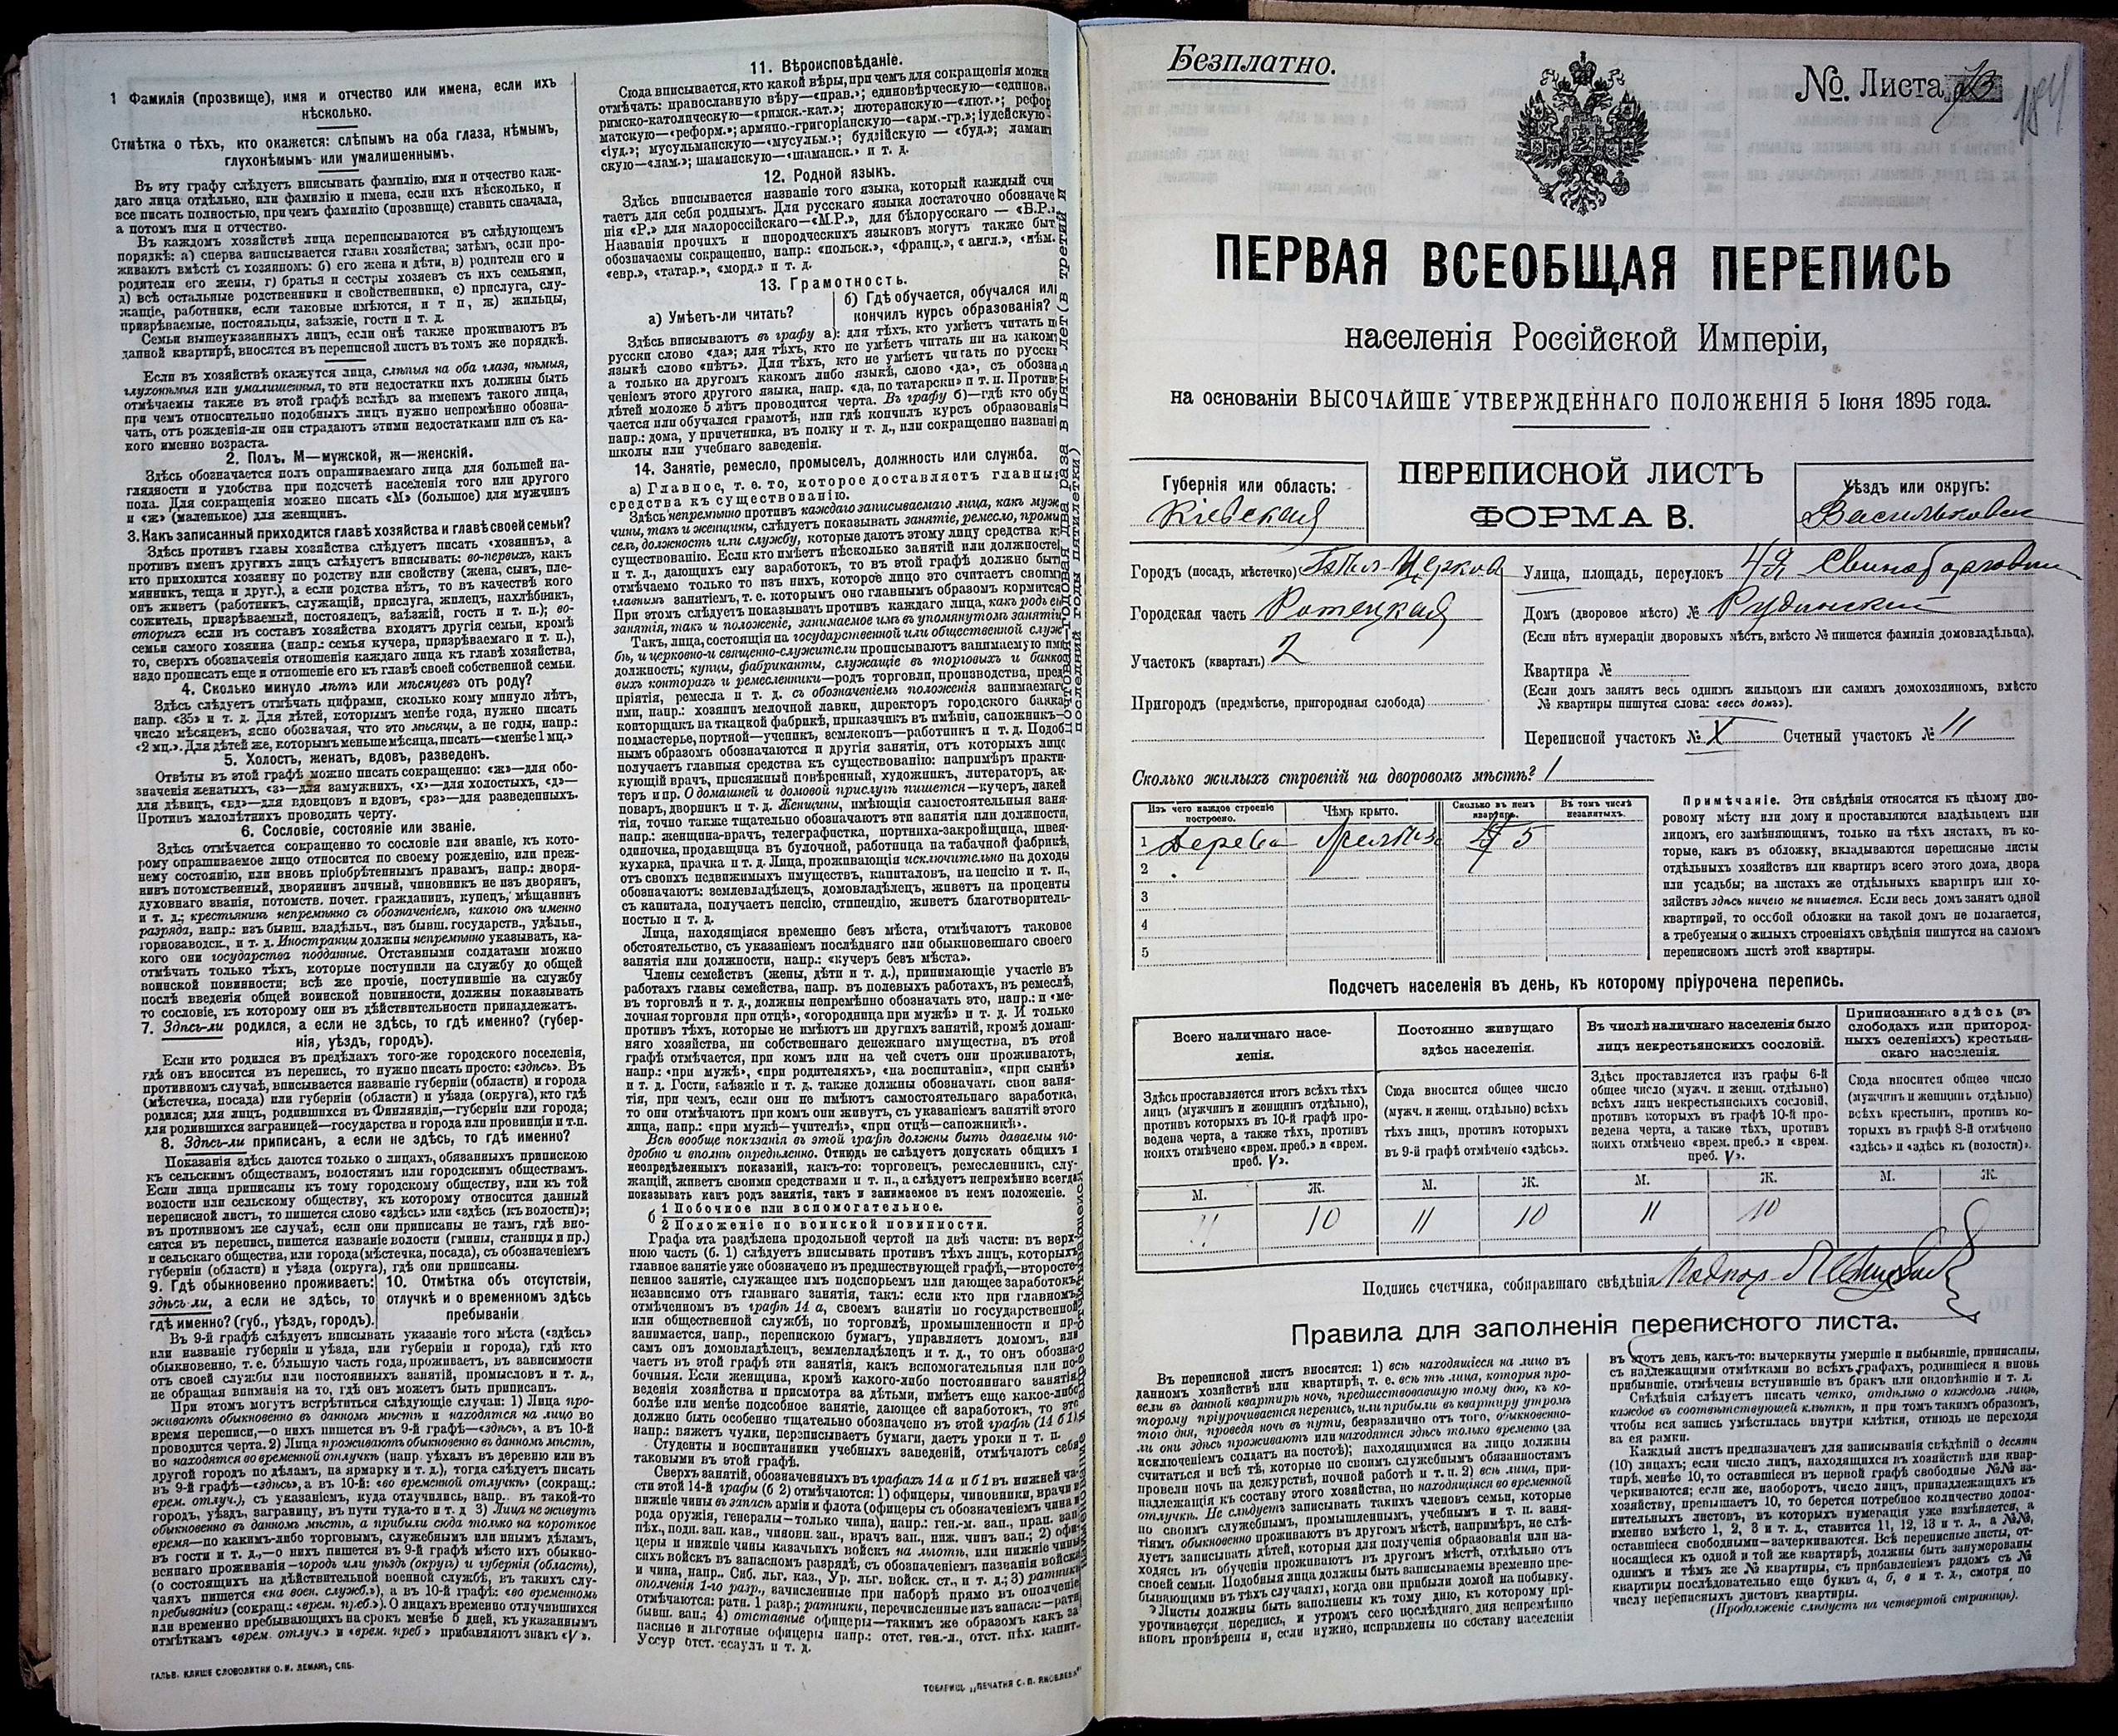 1 Фамилія (прозвище), имя и отчество или имена, если ихъ
нѣсколько.
Отмѣтка о тѣхъ, кто окажется: слѣпымъ на оба глаза, нѣмымъ,
глухонѣмымъ или умалишеннымъ.
Въ эту графу слѣдуетъ вписывать фамилію, имя и отчество каж-
даго лица отдѣльно, или фамилію и имена, если ихъ нѣсколько, и
все писать полностью, при чемъ фамилію (прозвище) ставить сначала,
а потомъ имя и отчество.
Въ каждомъ хозяйствѣ лица переписываются въ слѣдующемъ
порядкѣ: а) сперва записывается глава хозяйства; затѣмъ, если про-
живаютъ вмѣстѣ съ хозяиномъ: б) его жена и дѣти, в) родители его и
родители его жены, г) братья и сестры хозяевъ съ ихъ семьями,
д) всѣ остальные родственники и свойственники, е) прислуга, слу-
жащіе, работники, если таковые имѣются, и т п, ж) жильцы,
призрѣваемые, постояльцы, заѣзжіе, гости и т. д.
Семьи вышеуказанныхъ лицъ, если онѣ также проживаютъ въ
данной квартирѣ, вносятся въ переписной листъ въ томъ же порядкѣ.
Если въ хозяйствѣ окажутся лица, слѣпыя на оба глаза, нѣмыя,
глухонѣмыя или умалишенныя, то эти недостатки ихъ должны быть
отмѣчаемы также въ этой графѣ вслѣдъ за именемъ такого лица,
при чемъ относительно подобныхъ лицъ нужно непремѣнно обозна-
чать, отъ рожденія-ли они страдаютъ этими недостатками или съ ка-
кого именно возраста.
2. Полъ. М—мужской, ж—женскій.
Здѣсь обозначается полъ опрашиваемаго лица для большей на-
глядности и удобства при подсчетѣ населенія того или другого
пола. Для сокращенія можно писать «М» (большое) для мужчинъ
и «ж» (маленькое) для женщинъ.
3. Какъ записанный приходится главѣ хозяйства и главѣ своей семьи?
Здѣсь противъ главы хозяйства слѣдуетъ писать «хозяинъ», а
противъ именъ другихъ лицъ слѣдуетъ вписывать: во-первыхъ, какъ
кто приходится хозяину по родству или свойству (жена, сынъ, пле-
мянникъ, теща и друг.), а если родства нѣтъ, то въ качествѣ кого
онъ живетъ (работникъ, служащій, прислуга, жилецъ, нахлѣбникъ,
сожитель, призрѣваемый, постоялецъ, заѣзжій, гость и т. п.); во-
вторыхъ если въ составъ хозяйства входятъ другія семьи, кромѣ
семьи самого хозяина (напр.: семья кучера, призрѣваемаго и т. п.),
то, сверхъ обозначенія отношенія каждаго лица къ главѣ хозяйства,
надо прописать еще и отношеніе его къ главѣ своей собственной семьи.
4. Сколько минуло лѣтъ или мѣсяцевъ отъ роду?
Здѣсь слѣдуетъ отмѣчать цифрами, сколько кому минуло лѣтъ,
напр. «35» и т. д. Для дѣтей, которымъ менѣе года, нужно писать
число мѣсяцевъ, ясно обозначая, что это мѣсяцы, а не годы, напр.:
«2 мц.». Для дѣтей же, которымъ меньше мѣсяца, писать—«менѣе 1 мц.»
5. Холостъ, женатъ, вдовъ, разведенъ.
Отвѣты въ этой графѣ можно писать сокращенно: «ж»—для обо-
значенія женатыхъ, «з»—для замужнихъ, «х»—для холостыхъ, «д»—
для дѣвицъ, «вд»—для вдовцовъ и вдовъ, «рз»—для разведенныхъ.
Противъ малолѣтнихъ проводить черту.
6. Сословіе, состояніе или званіе.
Здѣсь отмѣчается сокращенно то сословіе или званіе, къ кото-
рому опрашиваемое лицо относится по своему рожденію, или преж-
нему состоянію, или вновь пріобрѣтеннымъ правамъ, напр.: дворя-
нинъ потомственный, дворянинъ личный, чиновникъ не изъ дворянъ,
духовнаго званія, потомств. почет. гражданинъ, купецъ, мѣщанинъ
и т. д.; крестьянинъ непремѣнно съ обозначеніемъ, какого онъ именно
разряда, напр.: изъ бывш. владѣльч., изъ бывш. государств., удѣльн.,
горнозаводск., и т. д. Иностранцы должны непремѣнно указывать, ка-
кого они государства подданные. Отставными солдатами можно
отмѣчать только тѣхъ, которые поступили на службу до общей
воинской повинности; всѣ же прочіе, поступившіе на службу
послѣ введенія общей воинской повинности, должны показывать
то сословіе, къ которому они въ дѣйствительности принадлежатъ.
7. Здѣсь-ли родился, а если не здѣсь, то гдѣ именно? (губер-
нія, уѣздъ, городъ).
Если кто родился въ предѣлахъ того-же городского поселенія,
гдѣ онъ вносится въ перепись, то нужно писать просто: «здѣсь». Въ
противномъ случаѣ, вписывается названіе губерніи (области) и города
(мѣстечка, посада) или губерніи (области) и уѣзда (округа), кто гдѣ
родился; для лицъ, родившихся въ Финляндіи,—губерніи или города;
для родившихся заграницей—государства и города или провинціи и т.п.
8. Здѣсь-ли приписанъ, а если не здѣсь, то гдѣ именно?
Показанія здѣсь даются только о лицахъ, обязанныхъ припискою
къ сельскимъ обществамъ, волостямъ или городскимъ обществамъ.
Если лица приписаны къ тому городскому обществу, или къ той
волости или сельскому обществу, къ которому относится данный
переписной листъ, то пишется слово «здѣсь» или «здѣсь (къ волости)»;
въ противномъ же случаѣ, если они приписаны не тамъ, гдѣ вно-
сятся въ перепись, пишется названіе волости (гмины, станицы и пр.)
и сельскаго общества, или города (мѣстечка, посада), съ обозначеніемъ
губерніи (области) и уѣзда (округа), гдѣ они приписаны.
9. Гдѣ обыкновенно проживаетъ:
здѣсь-ли, а если не здѣсь, то
гдѣ именно? (губ., уѣздъ, городъ).
10. Отмѣтка объ отсутствіи,
отлучкѣ и о временномъ здѣсь
пребываніи
Въ 9-й графѣ слѣдуетъ вписывать указаніе того мѣста («здѣсь»
или названіе губерніи и уѣзда, или губерніи и города), гдѣ кто
обыкновенно, т. е. бо́льшую часть года, проживаетъ, въ зависимости
отъ своей службы или постоянныхъ занятій, промысловъ и т. д.,
не обращая вниманія на то, гдѣ онъ можетъ быть приписанъ.
При этомъ могутъ встрѣтиться слѣдующіе случаи: 1) Лица про-
живаютъ обыкновенно въ данномъ мѣстѣ и находятся на лицо во
время переписи,—о нихъ пишется въ 9-й графѣ—«здѣсь», а въ 10-й
проводится черта. 2) Лица проживаютъ обыкновенно въ данномъ мѣстѣ,
но находятся во временной отлучкѣ (напр. уѣхалъ въ деревню или въ
другой городъ по дѣламъ, на ярмарку и т. д.), тогда слѣдуетъ писать
въ 9-й графѣ—«здѣсь», а въ 10-й: «во временной отлучкѣ» (сокращ.:
врем. отлуч.), съ указаніемъ, куда отлучились, напр.. въ такой-то
городъ, уѣздъ, заграницу, въ пути туда-то и т. д 3) Лица не живутъ
обыкновенно въ данномъ мѣстѣ, а прибыли сюда только на короткое
время—по какимъ-либо торговымъ, служебнымъ или инымъ дѣламъ,
въ гости и т. д.,—о нихъ пишется въ 9-й графѣ мѣсто ихъ обыкно-
веннаго проживанія—городъ или уѣздъ (округъ) и губернія (область),
(о состоящихъ на дѣйствительной военной службѣ, въ такихъ слу-
чаяхъ пишется «на воен. служб.»), а въ 10-й графѣ: «во временномъ
пребываніи» (сокращ.: «врем. преб.»). О лицахъ временно отлучившихся
или временно пребывающихъ на срокъ менѣе 5 дней, къ указаннымъ
отмѣткамъ «врем. отлуч.» и «врем. преб » прибавляютъ знакъ «V ».
ГАЛЬВ. КЛИШЕ СЛОВОЛИТНИ О. И. ЛЕМАНЪ, СПБ.
11. Вѣроисповѣданіе.
Сюда вписывается, кто какой вѣры, при чемъ для сокращенія можн
отмѣчать: православную вѣру—«прав.»; единовѣрческую—«единов.»
римско-католическую—«римск.-кат.»; лютеранскую—«лют.»; рефор
матскую—«реформ.»; армяно.-григоріанскую—«арм.-гр.»; іудейскую-
«іуд.»; мусульманскую—«мусульм.»; буддійскую — «буд.»; ламаит
скую—«лам.»; шаманскую—«шаманск.» и т. д.
12. Родной языкъ.
Здѣсь вписывается названіе того языка, который каждый счи
таетъ для себя роднымъ. Для русскаго языка достаточно обозначе
нія «Р.» для малороссійскаго—«М.Р.», для бѣлорусскаго — «Б.Р.»
Названія прочихъ и инородческихъ языковъ могутъ также быт
обозначаемы сокращенно, напр.: «польск.», «франц.», « англ.», «нѣм.
«евр.», «татар.», «морд.» и т. д.
13. Грамотность.
а) Умѣетъ-ли читать?
б) Гдѣ обучается, обучался ил
кончилъ курсъ образованія?
Здѣсь вписываютъ въ графу а): для тѣхъ, кто умѣетъ читать п
русски слово «да»; для тѣхъ, кто не умѣетъ читать ни на каком
языкѣ слово «нѣтъ». Для тѣхъ, кто не умѣетъ читать по русски
а только на другомъ какомъ либо языкѣ, слово «да», съ обозна
ченіемъ этого другого языка, напр. «да, по татарски» и т. п. Против
дѣтей моложе 5 лѣтъ проводится черта. Въ графу б)—гдѣ кто обу
чается или обучался грамотѣ, или гдѣ кончилъ курсъ образованія
напр.: дома, у причетника, въ полку и т. д., или сокращенно названі
школы или учебнаго заведенія.
14. Занятіе, ремесло, промыселъ, должность или служба.
а) Главное, т. е. то, которое доставляетъ главны
средства къ существованію.
Здѣсь непремѣнно противъ каждаго записываемаго лица, какъ муж
чины, такъ и женщины, слѣдуетъ показывать занятіе, ремесло, промы
селъ, должность или службу, которые даютъ этому лицу средства к
существованію. Если кто имѣетъ нѣсколько занятій или должностей
и т. д., дающихъ ему заработокъ, то въ этой графѣ должно быт
отмѣчаемо только то изъ нихъ, которое лицо это считаетъ своимъ
главнымъ занятіемъ, т. е. которымъ оно главнымъ образомъ кормится
При этомъ слѣдуетъ показывать противъ каждаго лица, какъ родъ ег
занятія, такъ и положеніе, занимаемое имъ въ упомянутомъ занятіи
Такъ, лица, состоящія на государственной или общественной служ
бѣ, и церковно-и священно-служители прописываютъ занимаемую им
должность; купцы, фабриканты, служащіе въ торговыхъ и банко
выхъ конторахъ и ремесленники—родъ торговли, производства, пред
пріятія, ремесла и т. д. съ обозначеніемъ положенія занимаемаго
ими, напр.: хозяинъ мелочной лавки, директоръ городского банка
конторщикъ на ткацкой фабрикѣ, приказчикъ въ имѣніи, сапожникъ—
подмастерье, портной—ученикъ, землекопъ—работникъ и т. д. Подоб
нымъ образомъ обозначаются и другія занятія, отъ которыхъ лицо
получаетъ главныя средства къ существованію: напримѣръ практи
кующій врачъ, присяжный повѣренный, художникъ, литераторъ, ак-
теръ и пр. О домашней и домовой прислугѣ пишется—кучеръ, лакей
поваръ, дворникъ и т. д. Женщины, имѣющія самостоятельныя заня-
тія, точно также тщательно обозначаютъ эти занятія или должности,
напр.: женщина-врачъ, телеграфистка, портниха-закройщица, швея-
одиночка, продавщица въ булочной, работница на табачной фабрикѣ,
кухарка, прачка и т. д. Лица, проживающія исключительно на доходы
отъ своихъ недвижимыхъ имуществъ, капиталовъ, на пенсію и т. п.,
обозначаютъ: землевладѣлецъ, домовладѣлецъ, живетъ на проценты
съ капитала, получаетъ пенсію, стипендію, живетъ благотворитель-
ностью и т. д.
Лица, находящіяся временно безъ мѣста, отмѣчаютъ таковое
обстоятельство, съ указаніемъ послѣдняго или обыкновеннаго своего
занятія или должности, напр.: «кучеръ безъ мѣста».
Члены семействъ (жены, дѣти и т. д.), принимающіе участіе въ
работахъ главы семейства, напр. въ полевыхъ работахъ, въ ремеслѣ,
въ торговлѣ и т. д., должны непремѣнно обозначать это, напр.: и «ме-
лочная торговля при отцѣ», «огородница при мужѣ» и т. д. И только
противъ тѣхъ, которые не имѣютъ ни другихъ занятій, кромѣ домаш-
няго хозяйства, ни собственнаго денежнаго имущества, въ этой
графѣ отмѣчается, при комъ или на чей счетъ они проживаютъ,
напр.: «при мужѣ», «при родителяхъ», «на воспитаніи», «при сынѣ»
и т. д. Гости, заѣзжіе и т. д. также должны обозначать свои заня-
тія, при чемъ, если они не имѣютъ самостоятельнаго заработка,
то они отмѣчаютъ при комъ они живутъ, съ указаніемъ занятій этого
лица, напр.: «при мужѣ—учителѣ», «при отцѣ—сапожникѣ».
Всѣ вообще показанія въ этой графѣ должны быть даваемы по-
дробно и вполнѣ опредѣленно. Отнюдь не слѣдуетъ допускать общихъ и
неопредѣленныхъ показаній, какъ-то: торговецъ, ремесленникъ, слу-
жащій, живетъ своими средствами и т. п., а слѣдуетъ непремѣнно всегда
показывать какъ родъ занятія, такъ и занимаемое въ немъ положеніе.
б 1 Побочное или вспомогательное.
2 Положеніе по воинской повинности.
Графа эта раздѣлена продольной чертой на двѣ части: въ верх-
нюю часть (б. 1) слѣдуетъ вписывать противъ тѣхъ лицъ, которыхъ
главное занятіе уже обозначено въ предшествующей графѣ,—второсте-
пенное занятіе, служащее имъ подспорьемъ или дающее заработокъ,
независимо отъ главнаго занятія, такъ: если кто при главномъ,
отмѣченномъ въ графѣ 14 а, своемъ занятіи по государственной
или общественной службѣ, по торговлѣ, промышленности и пр.
занимается, напр., перепискою бумагъ, управляетъ домомъ, или
самъ онъ домовладѣлецъ, землевладѣлецъ и т. д., то онъ обозна-
чаетъ въ этой графѣ эти занятія, какъ вспомогательныя или по-
бочныя. Если женщина, кромѣ какого-либо постояннаго занятія,
веденія хозяйства и присмотра за дѣтьми, имѣетъ еще какое-либо
болѣе или менѣе подсобное занятіе, дающее ей заработокъ, то это
должно быть особенно тщательно обозначено въ этой графѣ (14 б 1),
напр.: вяжетъ чулки, переписываетъ бумаги, даетъ уроки и т. п.
Студенты и воспитанники учебныхъ заведеній, отмѣчаютъ себя
таковыми въ этой графѣ.
Сверхъ занятій, обозначенныхъ въ графахъ 14 а и б 1 въ нижней ча-
сти этой 14-й графы (б 2) отмѣчаются: 1) офицеры, чиновники, врачи и
нижніе чины въ запасѣ арміи и флота (офицеры съ обозначеніемъ чина и
рода оружія, генералы—только чина), напр.: ген.-м. зап., прап. зап.
пѣх., подп. зап. кав., чиновн. зап., врачъ зап., ниж. чинъ зап.; 2) офи-
церы и нижніе чины казачьихъ войскъ на льготѣ, или нижніе чины
сихъ войскъ въ запасномъ разрядѣ, съ обозначеніемъ названія войска
и чина, напр.. Сиб. льг. каз., Ур. льг. войск. ст., и т. д.; 3) ратники
ополченія 1-го разр., зачисленные при наборѣ прямо въ ополченіе,
отмѣчаются: ратн. 1 разр.; ратники, перечисленные изъ запаса:—ратн.
бывш. зап.; 4) отставные офицеры—такимъ же образомъ какъ за-
пасные и льготные офицеры напр.: отст. ген.-л., отст. пѣх. капит.,
Уссур отст. есаулъ и т. д.
ТОВАРИЩ. „ПЕЧАТНЯ С. П. ЯКОВЛЕВА“
Безплатно.
№ Листа
184
ПЕРВАЯ ВСЕОБЩАЯ ПЕРЕПИСЬ
населенія Россійской Имперіи,
на основаніи ВЫСОЧАЙШЕ УТВЕРЖДЕННАГО ПОЛОЖЕНІЯ 5 Іюня 1895 года.
ПЕРЕПИСНОЙ ЛИСТЪ
ФОРМА В.
Губернія или область:
Кіевская
Уѣздъ или округъ:
Васильковск
Городъ (посадъ, мѣстечко) Бѣлая-Церковь
Городская часть Ротецкая
Участокъ (кварталъ) 2
Пригородъ (предмѣстье, пригородная слобода)
Улица, площадь, переулокъ 4я
Домъ (дворовое мѣсто) № Рудинскій
(Если нѣтъ нумераціи дворовыхъ мѣстъ, вмѣсто № пишется фамилія домовладѣльца).
Квартира №
(Если домъ занятъ весь однимъ жильцомъ или самимъ домохозяиномъ, вмѣсто
№ квартиры пишутся слова: «весь домъ»).
Переписной участокъ № X Счетный участокъ № 11
Сколько жилыхъ строеній на дворовомъ мѣстѣ? 1
Изъ чего каждое строеніе построено.
Чѣмъ крыто.
Сколько въ немъ квартиръ.
Въ томъ числѣ незанятыхъ.
1 Дерева Желѣзо 5
2
3
4
5
Примѣчаніе. Эти свѣдѣнія относятся къ цѣлому дво-
ровому мѣсту или дому и проставляются владѣльцемъ или
лицомъ, его замѣняющимъ, только на тѣхъ листахъ, въ ко-
торые, какъ въ обложку, вкладываются переписные листы
отдѣльныхъ хозяйствъ или квартиръ всего этого дома, двора
или усадьбы; на листахъ же отдѣльныхъ квартиръ или хо-
зяйствъ здѣсь ничего не пишется. Если весь домъ занятъ одной
квартирой, то особой обложки на такой домъ не полагается,
а требуемыя о жилыхъ строеніяхъ свѣдѣнія пишутся на самомъ
переписномъ листѣ этой квартиры.
Подсчетъ населенія въ день, къ которому пріурочена перепись.
Всего наличнаго насе-
ленія.
Здѣсь проставляется итогъ всѣхъ тѣхъ
лицъ (мужчинъ и женщинъ отдѣльно),
противъ которыхъ въ 10-й графѣ про-
ведена черта, а также тѣхъ, противъ
коихъ отмѣчено «врем. преб.» и «врем.
преб. V».
Постоянно живущаго
здѣсь населенія.
Сюда вносится общее число
(мужч. и женщ. отдѣльно) всѣхъ
тѣхъ лицъ, противъ которыхъ
въ 9-й графѣ отмѣчено «здѣсь».
Въ числѣ наличнаго населенія было
лицъ некрестьянскихъ сословій.
Здѣсь проставляется изъ графы 6-й
общее число (мужч. и женщ. отдѣльно)
всѣхъ лицъ некрестьянскихъ сословій,
противъ которыхъ въ графѣ 10-й про-
ведена черта, а также тѣхъ, противъ
коихъ отмѣчено «врем. преб.» и «врем.
преб. V».
Приписаннаго здѣсь (въ
слободахъ или пригород-
ныхъ селеніяхъ) крестьян-
скаго населенія.
Сюда вносится общее число
(мужчинъ и женщинъ отдѣльно)
всѣхъ крестьянъ, противъ ко-
торыхъ въ графѣ 8-й отмѣчено
«здѣсь» и «здѣсь къ (волости)».
М. Ж. М. Ж. М. Ж. М. Ж.
11 10 11 10 11 10
Подпись счетчика, собиравшаго свѣдѣнія
Правила для заполненія переписного листа.
Въ переписной листъ вносятся: 1) всѣ находящіеся на лицо въ
данномъ хозяйствѣ или квартирѣ, т. е. всѣ тѣ лица, которыя про-
вели въ данной квартирѣ ночь, предшествовавшую тому дню, къ ко-
торому пріурочивается перепись, или прибыли въ квартиру утромъ
того дня, проведя ночь въ пути, безразлично отъ того, обыкновенно-
ли они здѣсь проживаютъ или находятся здѣсь только временно (за
исключеніемъ солдатъ на постоѣ); находящимися на лицо должны
считаться и всѣ тѣ, которые по своимъ служебнымъ обязанностямъ
провели ночь на дежурствѣ, ночной работѣ и т. п. 2) всѣ лица, при-
надлежащія къ составу этого хозяйства, но находящіяся во временной
отлучкѣ. Не слѣдуетъ записывать такихъ членовъ семьи, которые
по своимъ служебнымъ, промышленнымъ, учебнымъ и т. п. заня-
тіямъ обыкновенно проживаютъ въ другомъ мѣстѣ, напримѣръ, не слѣ-
дуетъ записывать дѣтей, которыя для полученія образованія или на-
ходясь въ обученіи проживаютъ въ другомъ мѣстѣ, отдѣльно отъ
своей семьи. Подобныя лица должны быть записываемы временно пре-
бывающими въ тѣхъ случаяхъ, когда они прибыли домой на побывку.
Листы должны быть заполнены къ тому дню, къ которому прі-
урочивается перепись, и утромъ сего послѣдняго дня непремѣнно
вновь провѣрены и, если нужно, исправлены по составу населенія
въ этотъ день, какъ-то: вычеркнуты умершіе и выбывшіе, приписаны,
съ надлежащими отмѣтками во всѣхъ графахъ, родившіеся и вновь
прибывшіе, отмѣчены вступившіе въ бракъ или овдовѣвшіе и т. д.
Свѣдѣнія слѣдуетъ писать четко, отдѣльно о каждомъ лицѣ,
каждое въ соотвѣтствующей клѣткѣ, и при томъ такимъ образомъ,
чтобы вся запись умѣстилась внутри клѣтки, отнюдь не переходя
за ея рамки.
Каждый листъ предназначенъ для записыванія свѣдѣній о десяти
(10) лицахъ; если число лицъ, находящихся въ хозяйствѣ или квар-
тирѣ, менѣе 10, то оставшіеся въ первой графѣ свободные №№ за-
черкиваются; если же, наоборотъ, число лицъ, принадлежащихъ къ
хозяйству, превышаетъ 10, то берется потребное количество допол-
нительныхъ листовъ, въ которыхъ нумерація уже измѣняется, а
именно вмѣсто 1, 2, 3 и т. д., ставится 11, 12, 13 и т. д., а №№,
оставшіеся свободными—зачеркиваются. Всѣ переписные листы, от-
носящіеся къ одной и той же квартирѣ, должны быть занумерованы
однимъ и тѣмъ же № квартиры, съ прибавленіемъ рядомъ съ №
квартиры послѣдовательно еще буквъ а, б, в и т. д., смотря по
числу переписныхъ листовъ квартиры.
(Продолженіе слѣдуетъ на четвертой страницѣ).